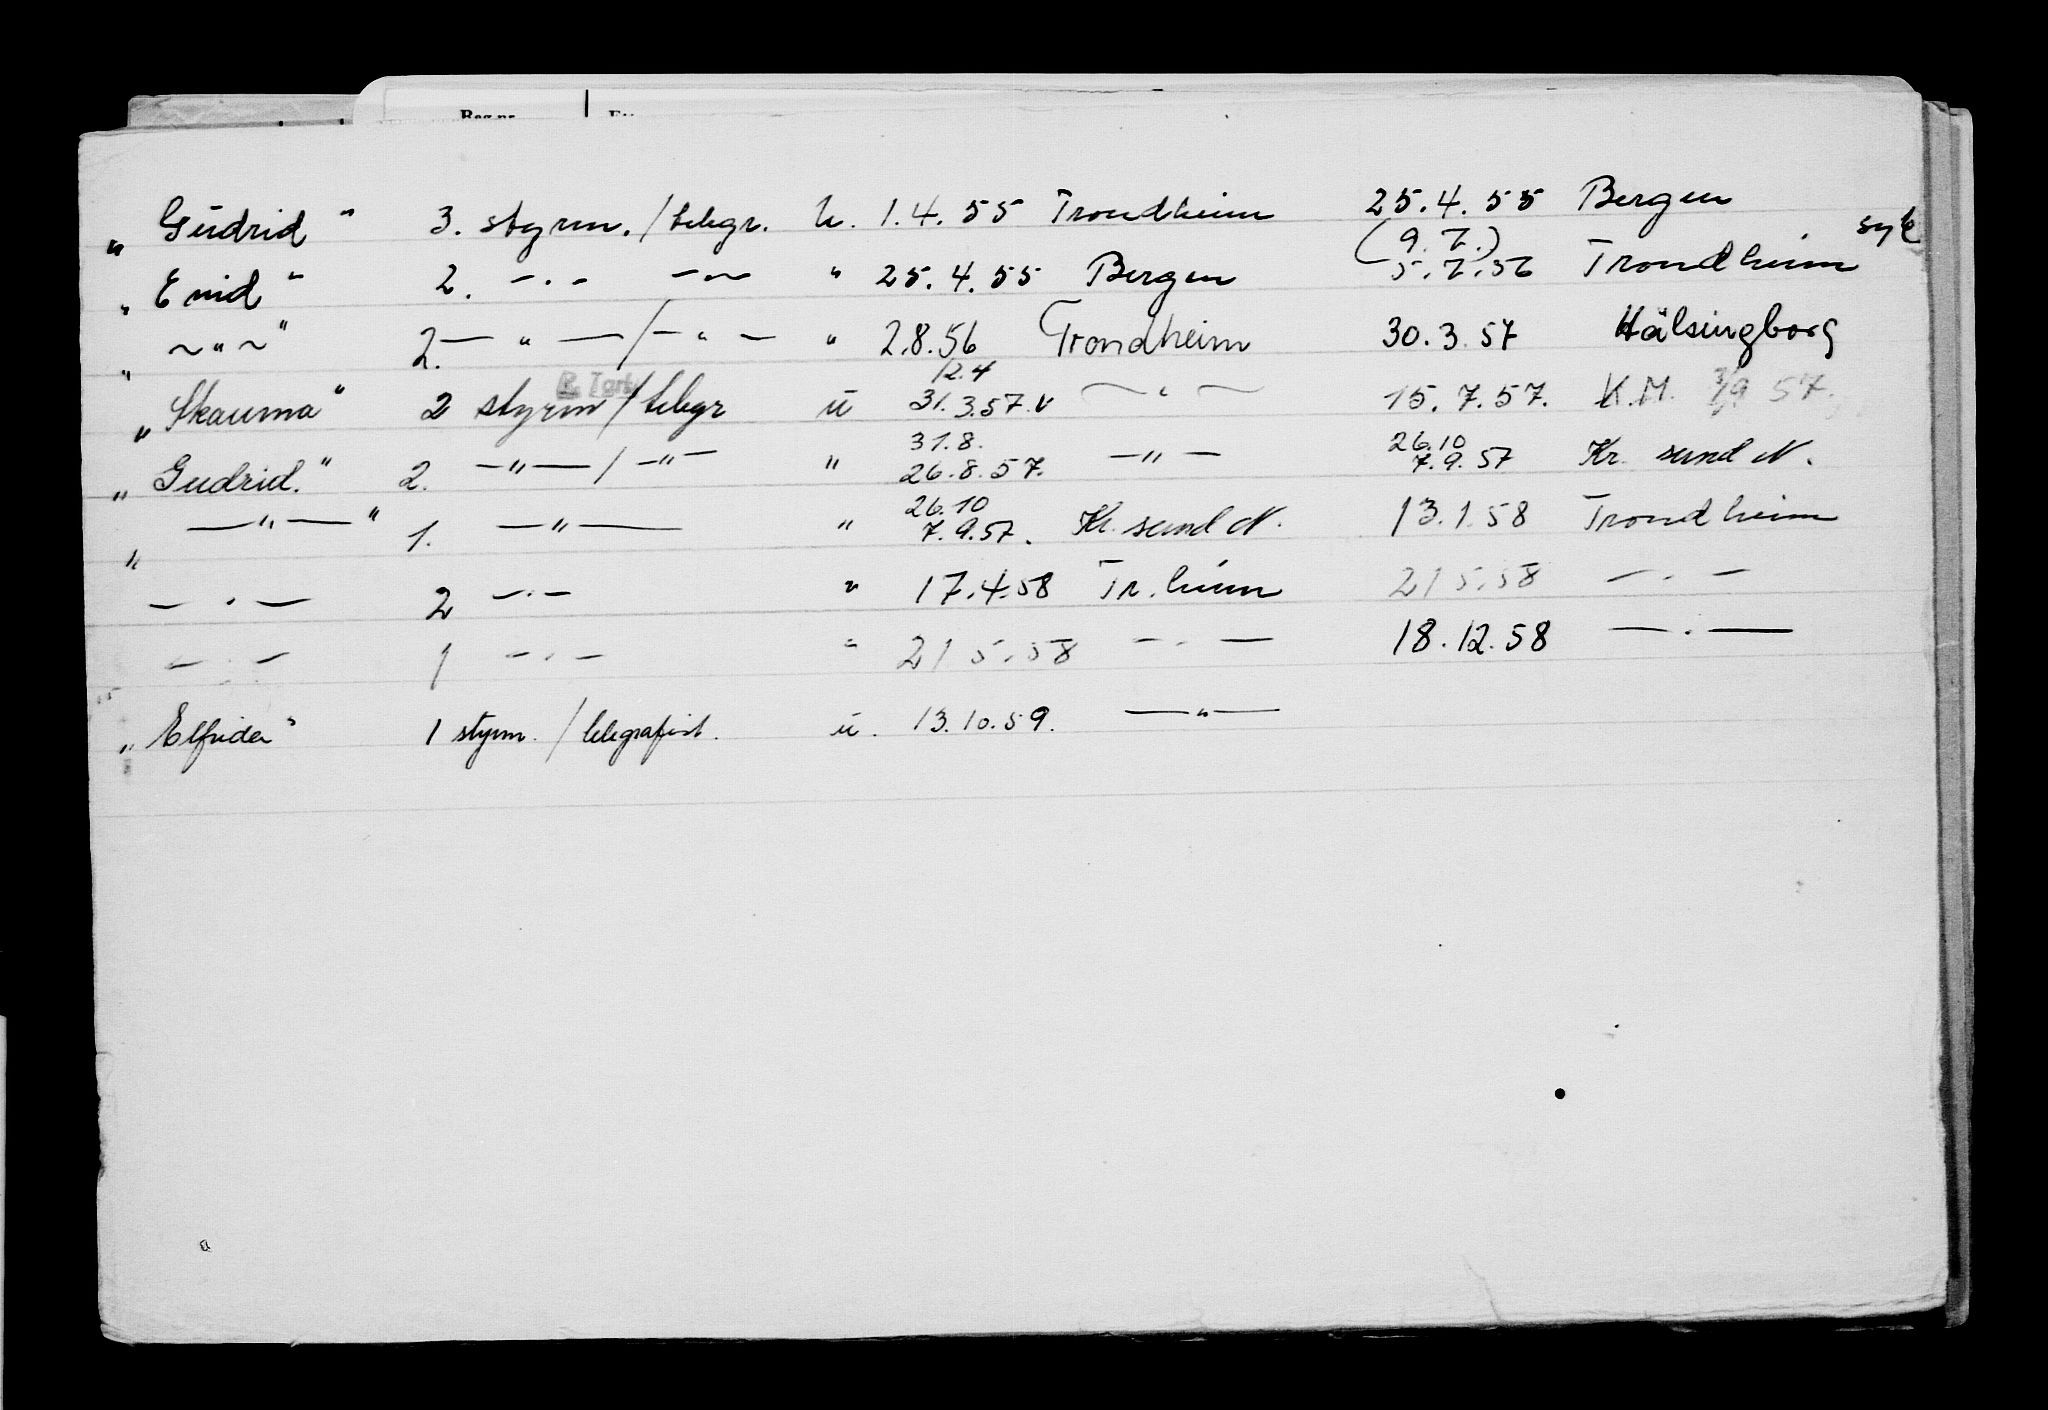 „Gudrid" 3. styrm./telegr. u. 1.4.55 Trondheim 25.4.55 Bergen
„Enid" 2. —.— —〃— " 25.4.55 Bergen (9.7.) 5.7.56 Trondheim syk
„~"~" 2. —"—/—"— " 2.8.56 Trondheim 30.3.57 Hälsingborg
12.4
„Skauma" 2 styrm/telegr u 31.3.57. —"— 15.7.57. K.M. 3/9 57.
31.8. 26.10
„Gudrid." 2. —"—/—"— " 26.8.57. —"— 7.9.57 Kr. sund N.
26.10
„—"—" 1. —"— " 7.9.57. Kr. sund N. 13.1.58 Trondheim
—.— 2 —.— " 17.4.58 Tr.heim 21 5.58 —.—
—.— 1 —.— " 21 5.58 —.— 18.12.58 —.—
„Elfrida" 1 styrm. / telegrafist. u. 13.10.59. —"—